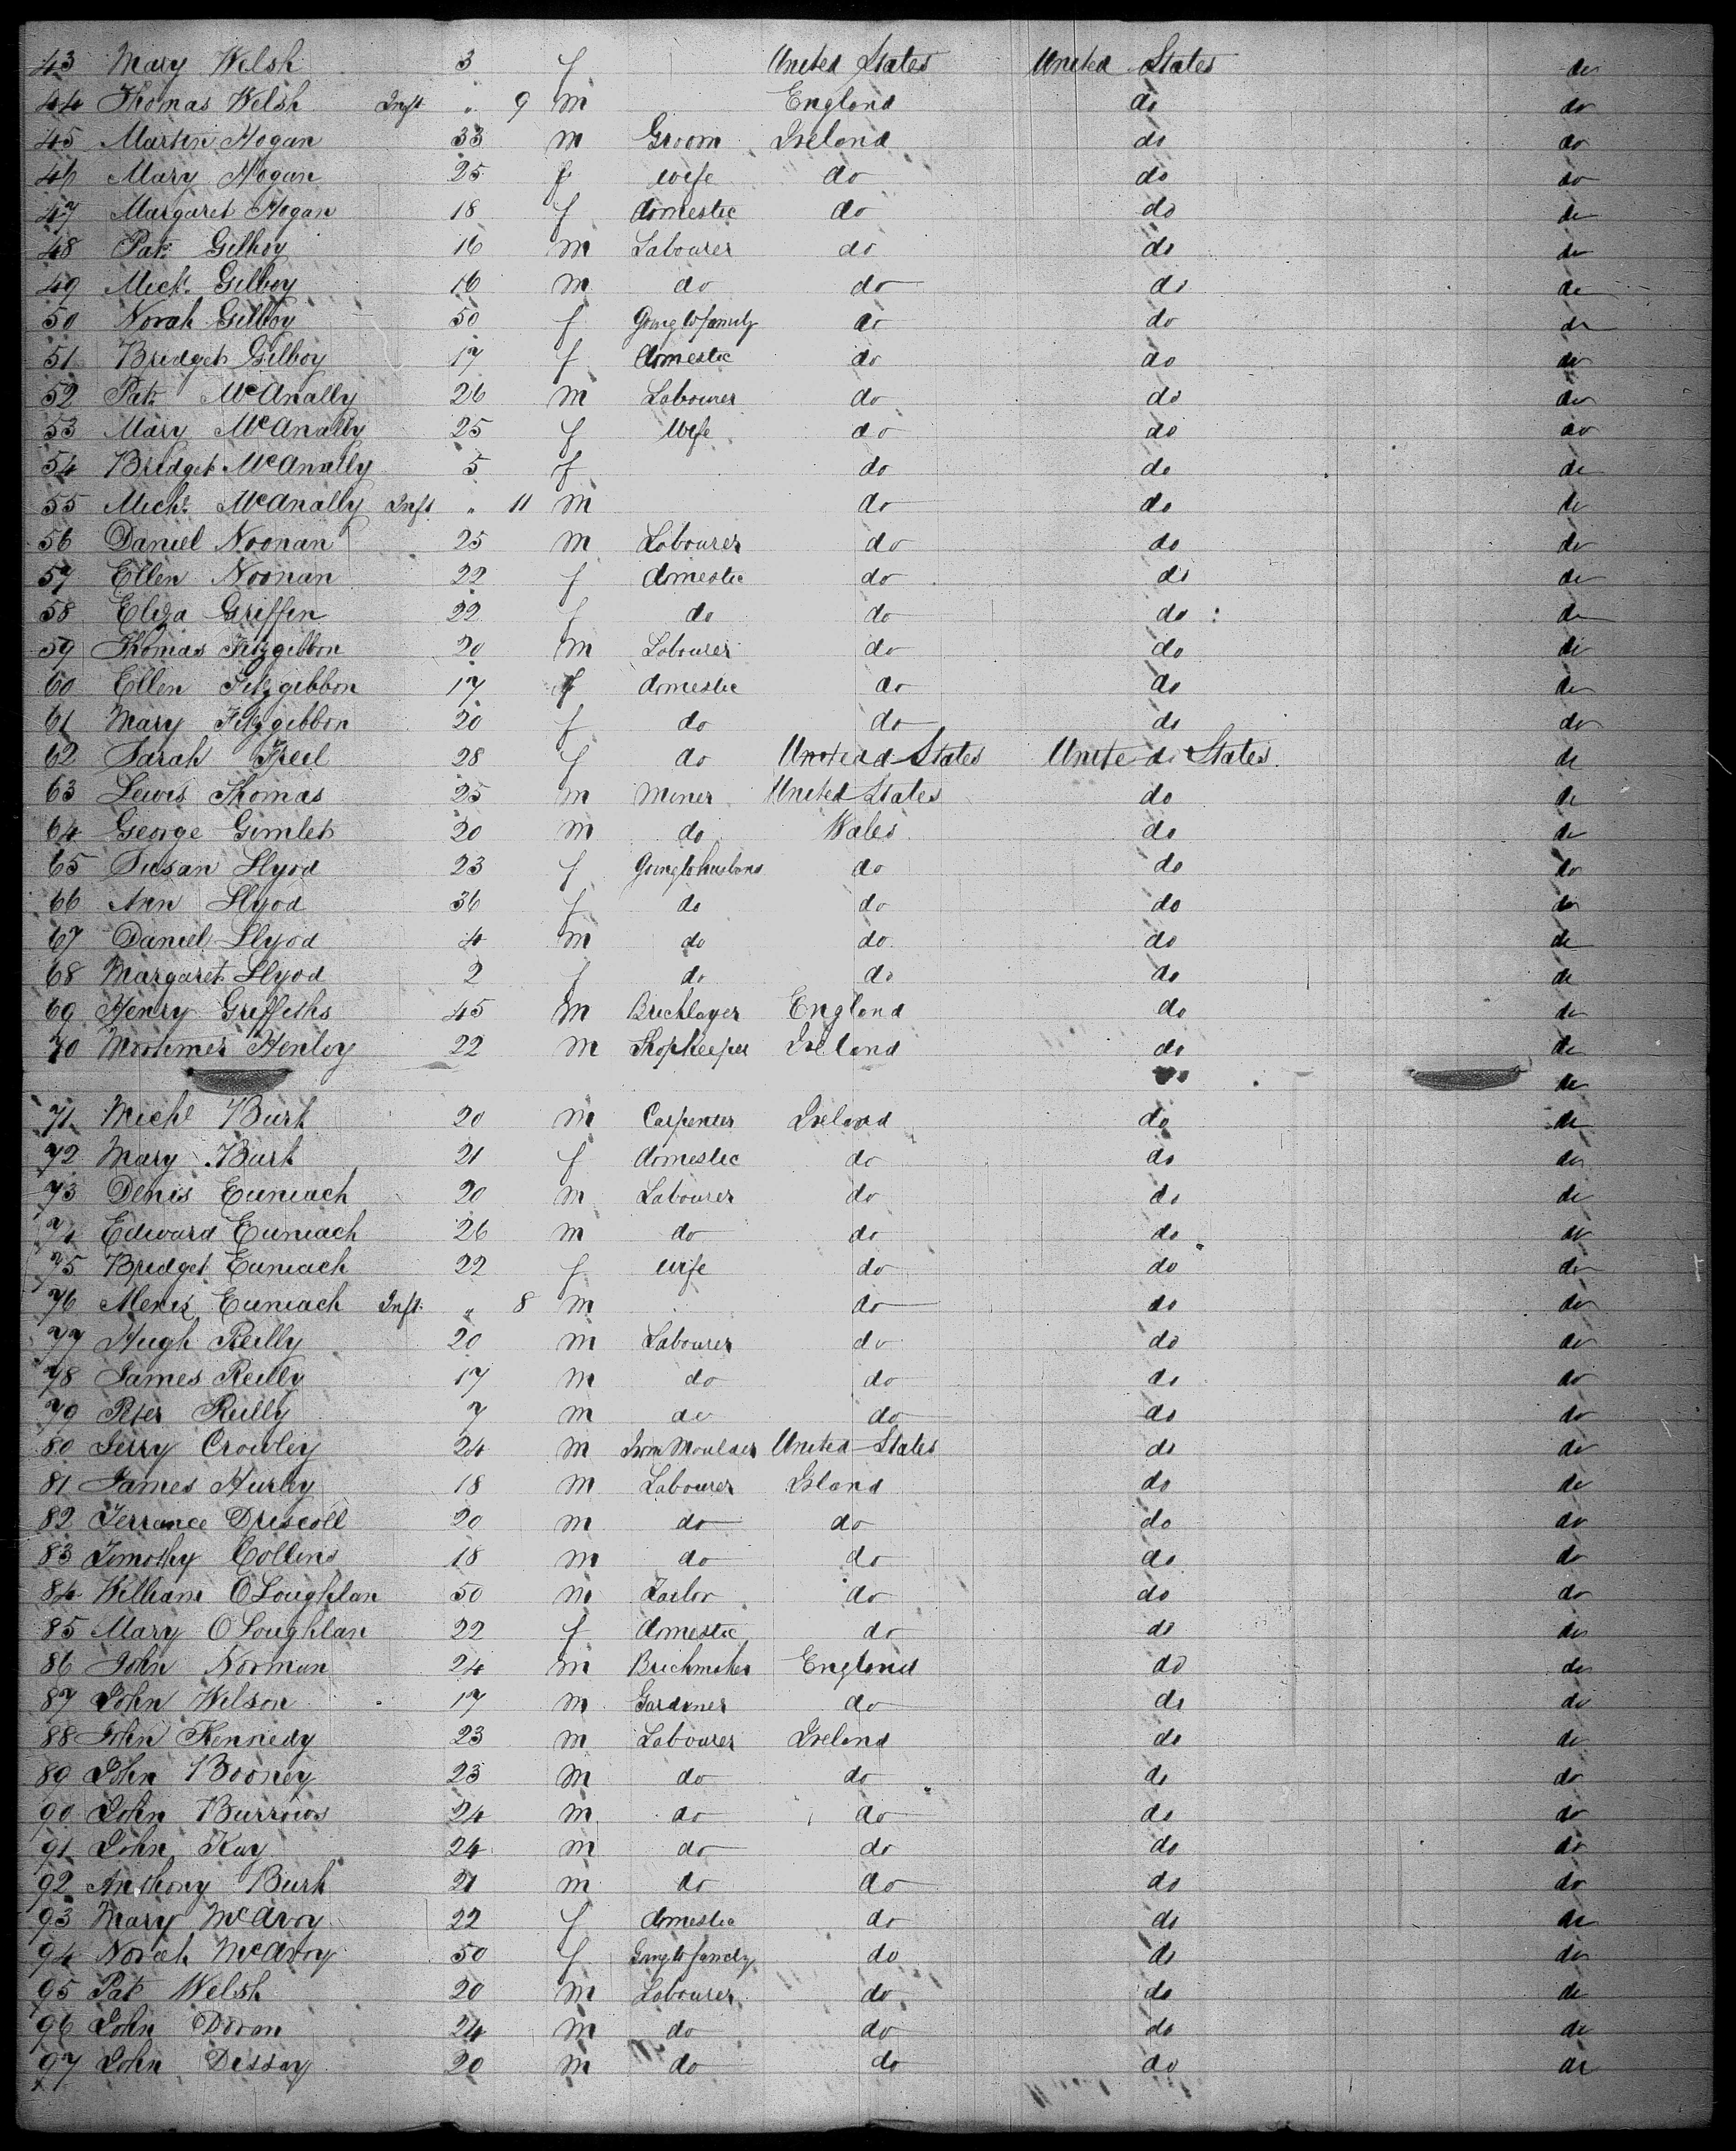 43 Mary Welsh 3 f United States United States do
44 Thomas Welsh Inft " 9 m England do do
45 Martin Hogan 33 m Groom Ireland do do
46 Mary Hogan 25 f wife do do do
47 Margaret Hogan 18 f domestic do do do
48 Pat Gilboy 16 m Labourer do do do
49 Mich. Gilboy 16 m do do do do
50 Norah Gilboy 50 f Going to family do do do
51 Bridget Gilboy 17 f domestic do do do
52 Pat McAnally 26 m Labourer do do do
53 Mary McAnally 25 f Wife do do do
54 Bridget McAnally 5 f do do do
55 Michl McAnally Inft. " 11 m do do do
56 Daniel Noonan 25 m Labourer do do do
57 Ellen Noonan 22 f domestic do do do
58 Eliza Griffin 22 f do do do : do
59 Thomas Fitzgibbon 20 m Labourer do do do
60 Ellen Fitzgibbon 17 f domestic do do do
61 Mary Fitzgibbon 20 f do do do do
62 Sarah Freel 28 f do United States United States. do
63 Lewis Thomas 25 m Miner United States do do
64 George Gimlet 20 m do Wales do do
65 Susan Llyod 23 f Going to husband do do do
66 Ann Llyod 36 f do do do do
67 Daniel Llyod 4 m do do do do
68 Margaret Llyod 2 f do do do do
69 Henry Griffiths 45 m Bricklayer England do do
70 Mortimer Henley 22 m Shopkeeper Ireland do do
do do
71 Michl Burk 20 m Carpenter Ireland do do
72 Mary Burk 21 f domestic do do do
73 Denis Euniach 20 m Labourer do do do
74 Edward Euniach 26 m do do do do
75 Bridget Euniach 22 f wife do do do
76 Euniach Inft. " 8 m do do do
77 Hugh Reilly 20 m Labourer do do do
78 James Reilly 17 m do do do do
79 Peter Reilly 7 m do do do do
80 Jerry Crowley 24 m Iron Moulder United States do do
81 James Hurley 18 m Labourer Irland do do
82 Terrance Driscoll 20 m do do do do
83 Timothy Collins 18 m do do do do
84 William OLoughlan 50 m Tailor do do do
85 Mary OLoughlan 22 f domestic do do do
86 John Norman 24 m Brickmaker England do do
87 John Wilson 17 m Gardiner do do do
88 John Kennedy 23 m Labourer Ireland do do
89 John Booney 23 m do do do do
90 John Burrows 24 m do do do do
91 John Kay 24 m do do do do
92 Anthony Burk 21 m do do do do
93 Mary McAvoy 22 f domestic do do do
94 Norah McAvoy 50 f Going to family do do do
95 Pat Welsh 20 m Labourer do do do
96 John Doran 24 m do do do do
97 John Dessay 20 m do do do do